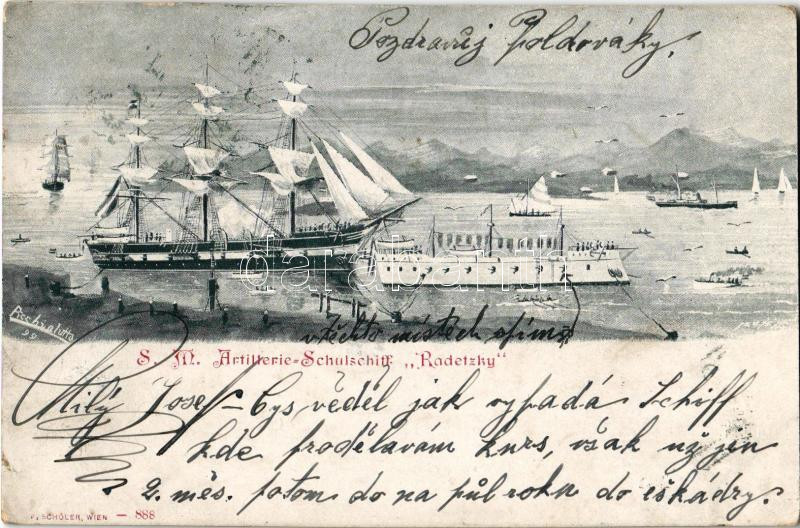 Pozdravuj Poldováky.
darabanth
v těchto místech spíme
Pischalutta
99
S. M. Artillerie-Schulschiff „Radetzky"
Milý Josef – bys věděl jak vypadá Schiff
kde prodělavám kurs, však už jen
2. měs. potom do na půl roku do eskádry.
F. SCHÖLER, WIEN — 888